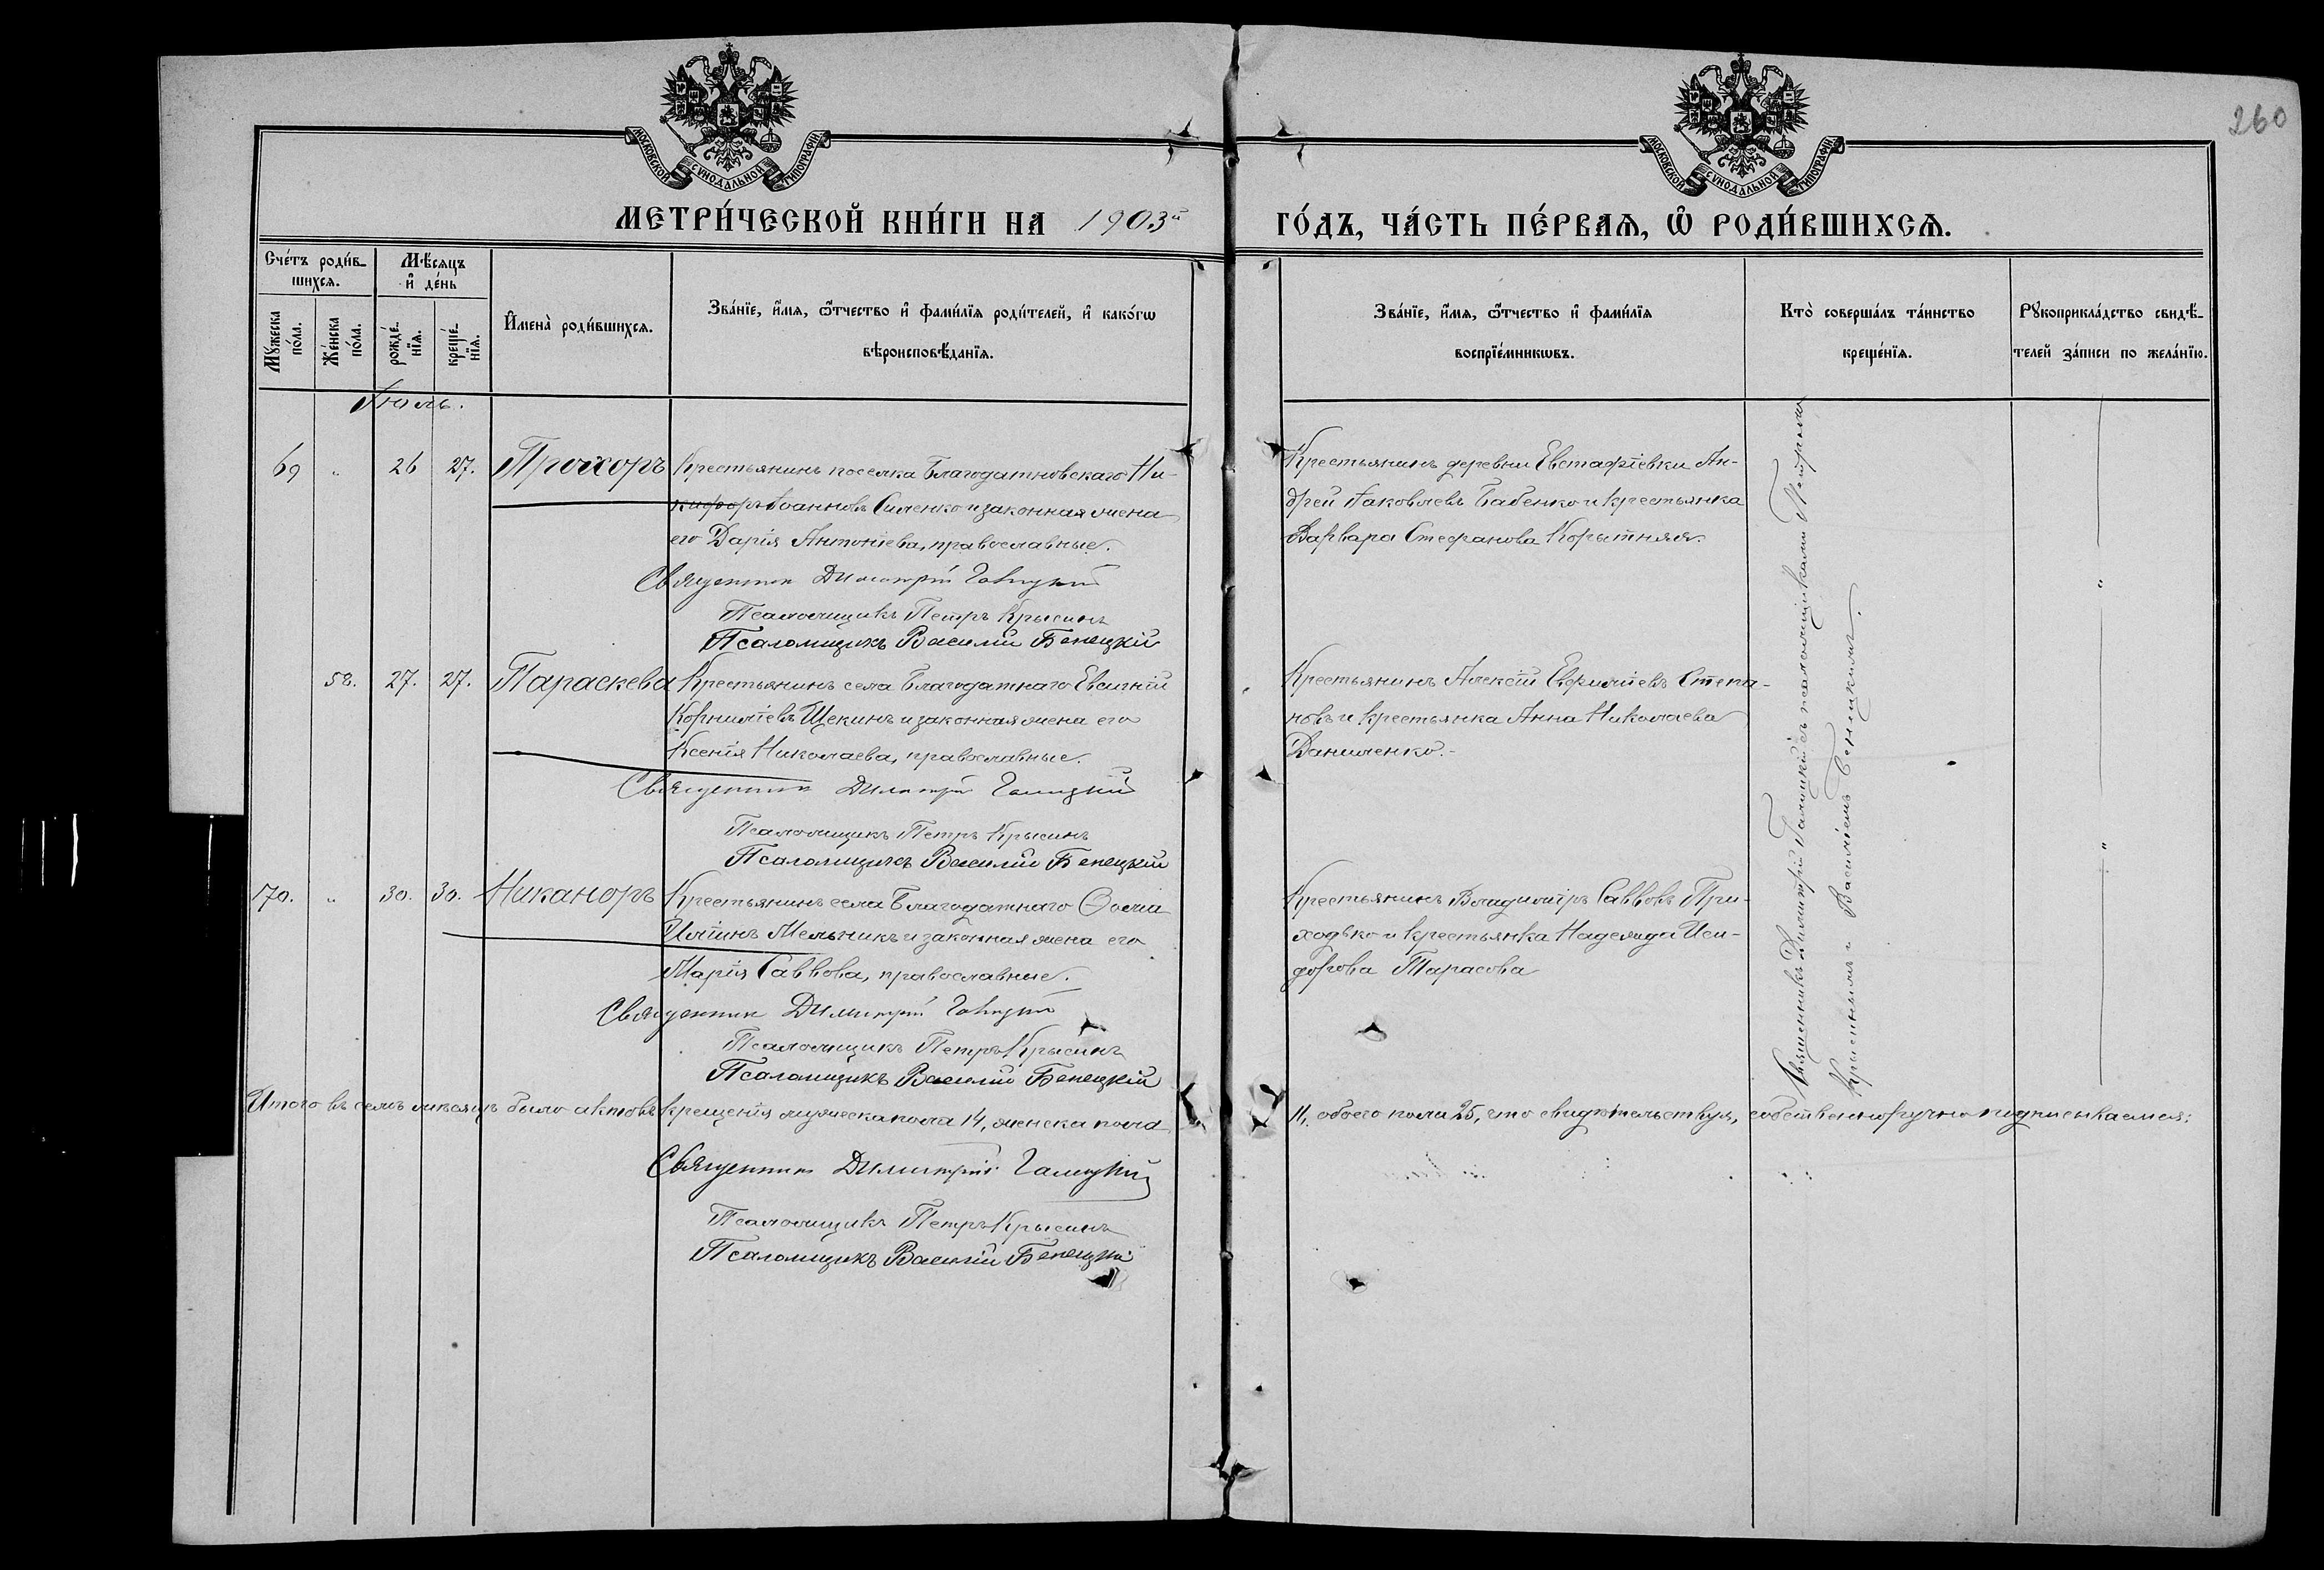 260
МОСКОВСКОЙ СѴНОДАЛЬНОЙ ТИПОГРАФІИ
МОСКОВСКОЙ СѴНОДАЛЬНОЙ ТИПОГРАФІИ
МЕТРИ́ЧЕСКОЙ КНИ́ГИ НА 1903й ГО́ДЪ, ЧА́СТЬ ПЕ́РВАѦ, Ѡ҆ РОДИ́ВШИХСѦ.
Сче́тъ роди́в-
шихсѧ.
Мѣ́сѧцъ
и҆ де́нь
Мꙋ́жеска
по́ла.
Же́нска
по́ла.
рожде́-
нїѧ.
креще́-
нїѧ.
И҆мена̀ роди́вшихсѧ.
Зва́нїе, и҆́мѧ, ѻ҆́тчество и҆ фами́лїѧ роди́телей, и҆ како́гѡ
вѣроисповѣ́данїѧ.
Зва́нїе, и҆́мѧ, ѻ҆́тчество и҆ фами́лїѧ
воспрїе́мникѡвъ.
Кто̀ соверша́лъ та́инство
креще́нїѧ.
Рꙋкоприкла́дство свидѣ́-
телей за́писи по жела́нїю.
Іюль.
69 „ 26 27. Прохоръ Крестьянинъ поселка Благодатновскаго Ни-
кифоръ Іоанновъ Силенко и законная жена
его Дарія Антоніева, православные.
Священник Димитрій Галицкій
Псаломщикъ Петръ Крысинъ
Псаломщикъ Василій Бенецкій
Крестьянинъ деревни Евстафіевки Ан-
дрей Іаковлевъ Бабенко и крестьянка
Варвара Стефанова Корытняя.
58. 27. 27. Параскева Крестьянинъ села Благодатнаго Евсигній
Корниліевъ Щекинъ и законная жена его
Ксенія Николаева, православные.
Священник Димитрій Галицкій
Псаломщикъ Петръ Крысинъ
Псаломщикъ Василій Бенецкій
Крестьянинъ Алексій Ефиміевъ Степа-
новъ и крестьянка Анна Николаева
Даниленко.
70. „ 30. 30. Никаноръ Крестьянинъ села Благодатнаго Ѳома
Иліинъ Мельникъ и законная жена его
Марія Саввова, православные.
Священник Димитрій Галицкій
Псаломщикъ Петръ Крысинъ
Псаломщикъ Василій Бенецкій
Крестьянинъ Владиміръ Саввовъ При-
ходько и крестьянка Надежда Иси-
дорова Тарасова
Священникъ Димитрій Галицкій съ псаломщиками Петромъ
Крысинымъ и Василіемъ Бенецкимъ.
Итого въ семъ мѣсяцѣ было актовъ крещенія мужеска пола 14, женска пола 11, обоего пола 25, что свидѣтельствуя, собственноручно подписываемся:
Священник Димитрій Галицкій
Псаломщикъ Петръ Крысинъ
Псаломщикъ Василій Бенецкій